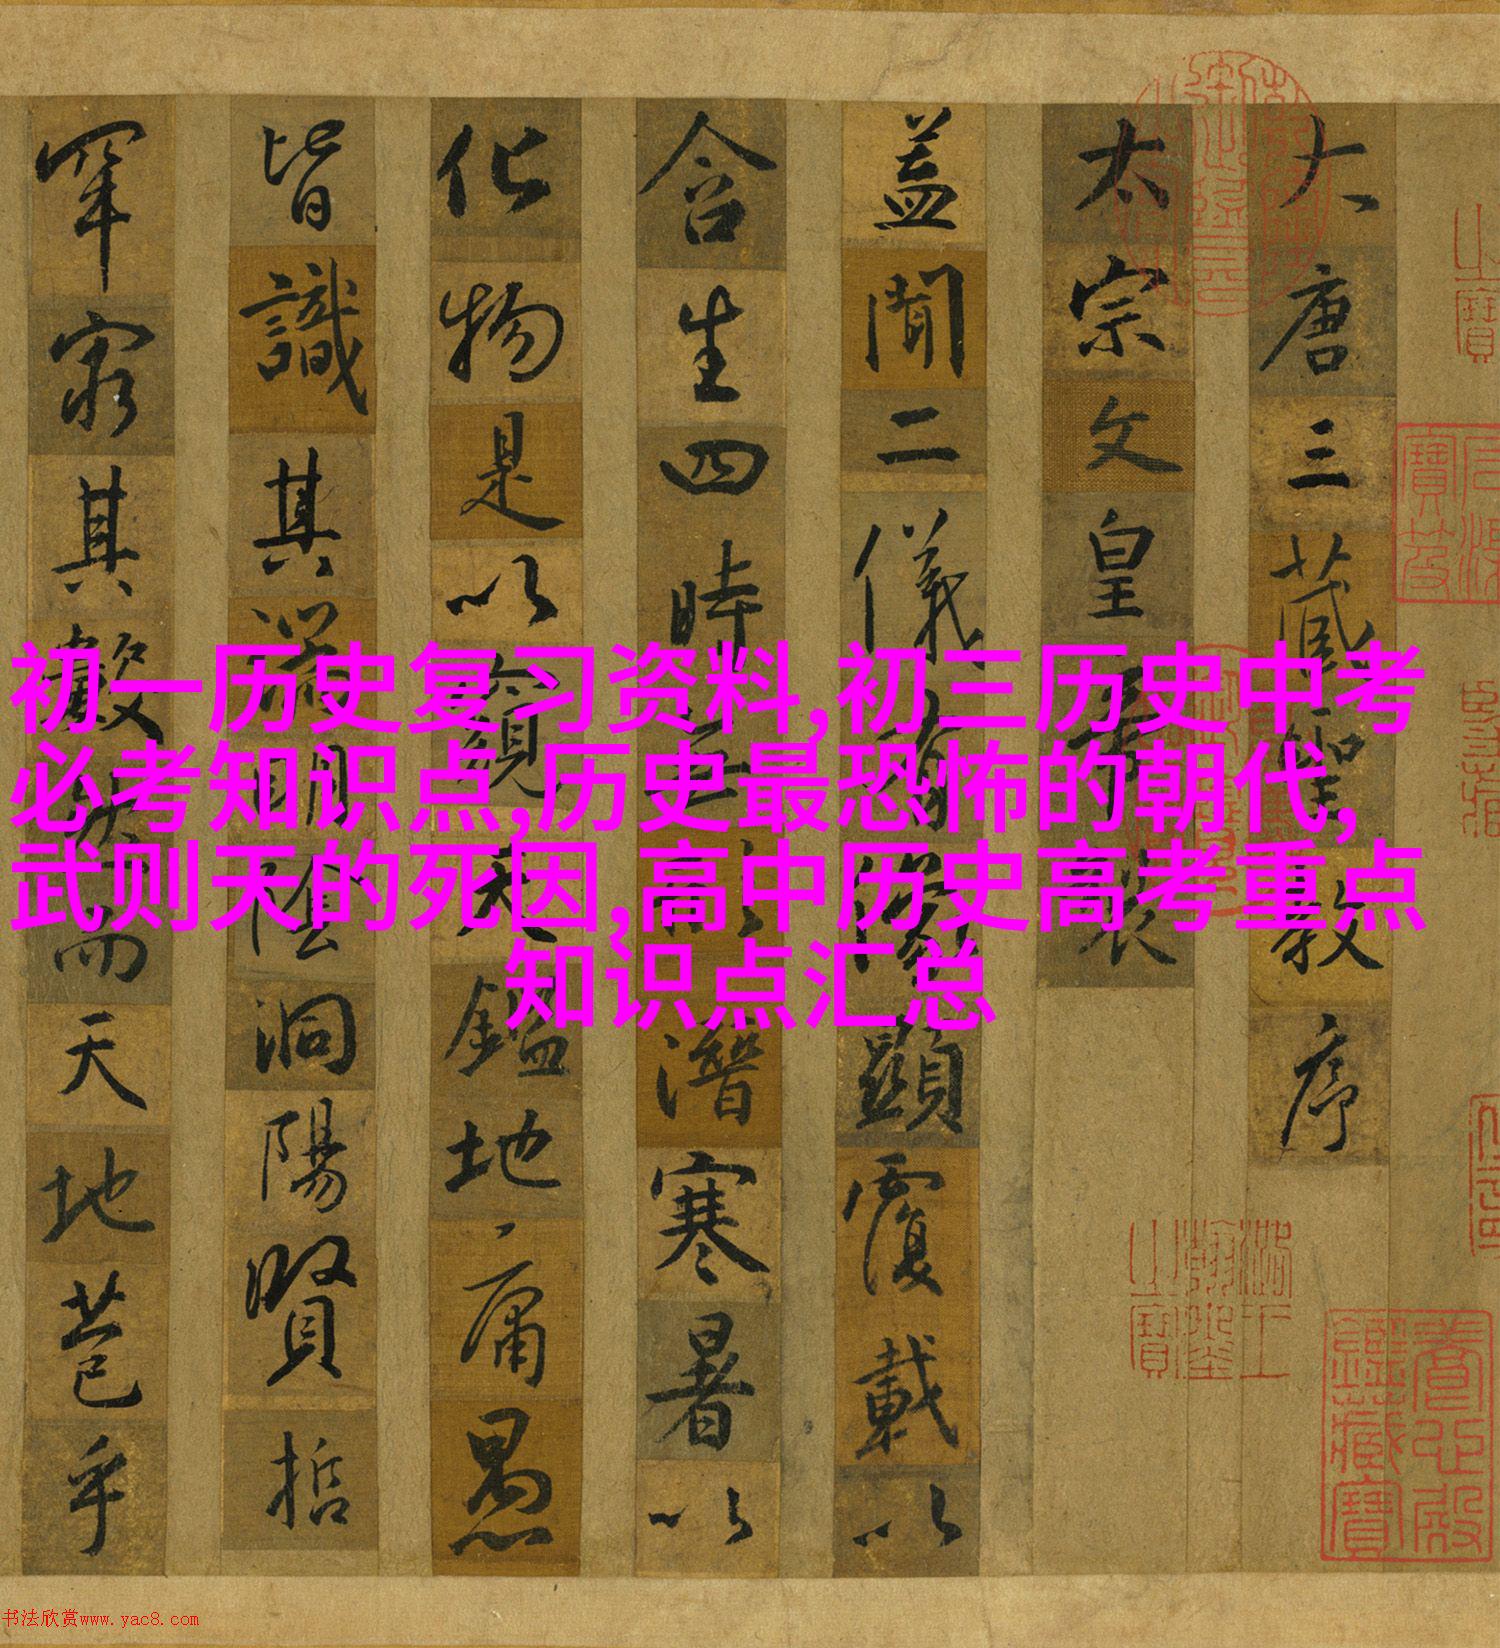 大唐三藏聖教序
太宗文皇
蓋聞二儀有顯覆載以
含生四時潛寒暑以
化物是以窺天鑑地庸愚
皆識其明陰洞陽賢哲
罕窮其數而天地苞乎
初一历史复习资料,初三历史中考
必考知识点,历史最恐怖的朝代,
武则天的死因,高中历史高考重点
知识点汇总
石渠寶笈
養心殿鑑藏寶
书法欣赏www.yac8.com